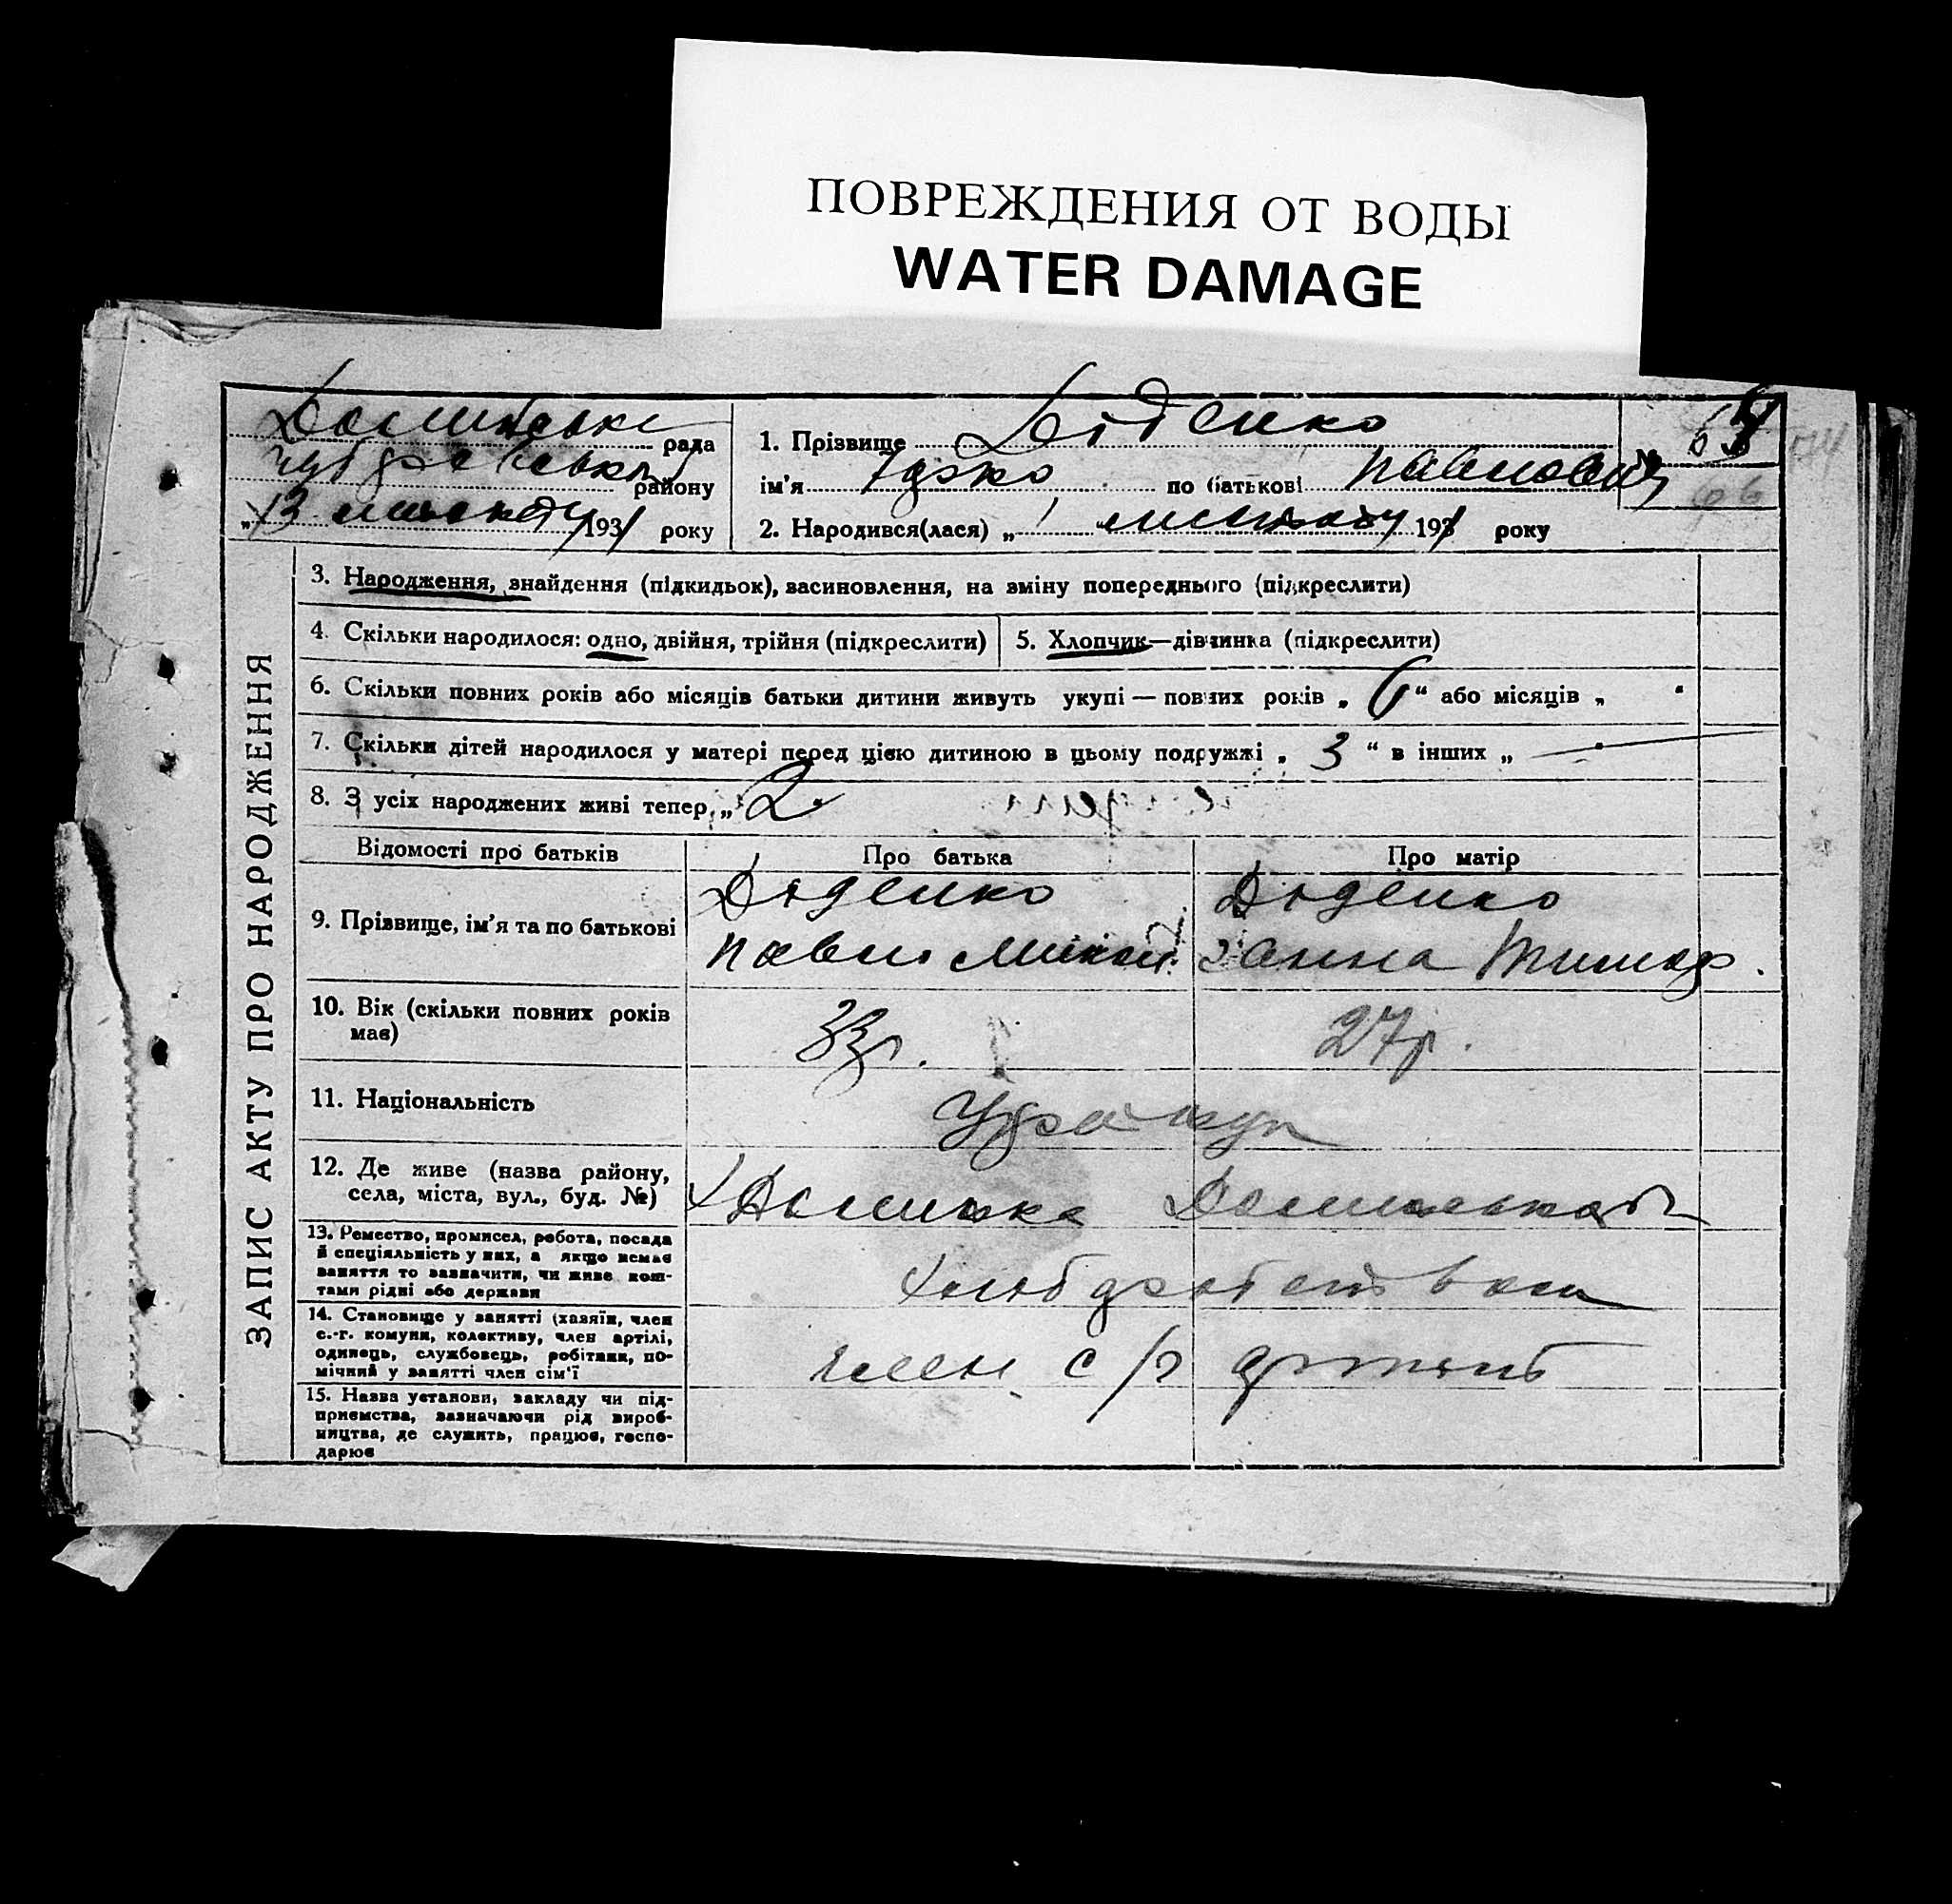 ПОВРЕЖДЕНИЯ ОТ ВОДЫ
WATER DAMAGE
рада
району
1931 року
1. Прізвище Діденко
ім'я по батькові Павлович
2. Народився(лася) „ листопаду 1931 року
№
ЗАПИС АКТУ ПРО НАРОДЖЕННЯ
3. Народження, знайдення (підкидьок), васиновлення, на зміну попереднього (підкреслити)
4. Скільки народилося: одно, двійня, трійня (підкреслити)
5. Хлопчик—дівчинка (підкреслити)
6. Скільки повних років або місяців батьки дитини живуть укупі — повних років „ 6 “ або місяців „ “
7. Скільки дітей народилося у матері перед цією дитиною в цьому подружжі „ 3 “ в інших „ — “
8. З усіх народжених живі тепер „ 2
Відомості про батьків Про батька Про матір
9. Прізвище, ім'я та по батькові
Діденко
Діденко
Ганна
10. Вік (скільки повних років має)
33 р.
27 р.
11. Національність
12. Де живе (назва району,
села, міста, вул., буд. №)
13. Ремество, промисел, робота, посада
й спеціяльність у них, а якщо немає
заняття то зазначити, чи живе кош-
тами рідні або держави
14. Становище у занятті (хазяїн, член
с.-г. комуни, колективу, член артілі,
одинець, службовець, робітник, по-
мічний у занятті член сім'ї
член с/г
15. Назва установи, закладу чи під-
приємства, зазначаючи рід вироб-
ництва, де служить, працює, госпо-
дарює